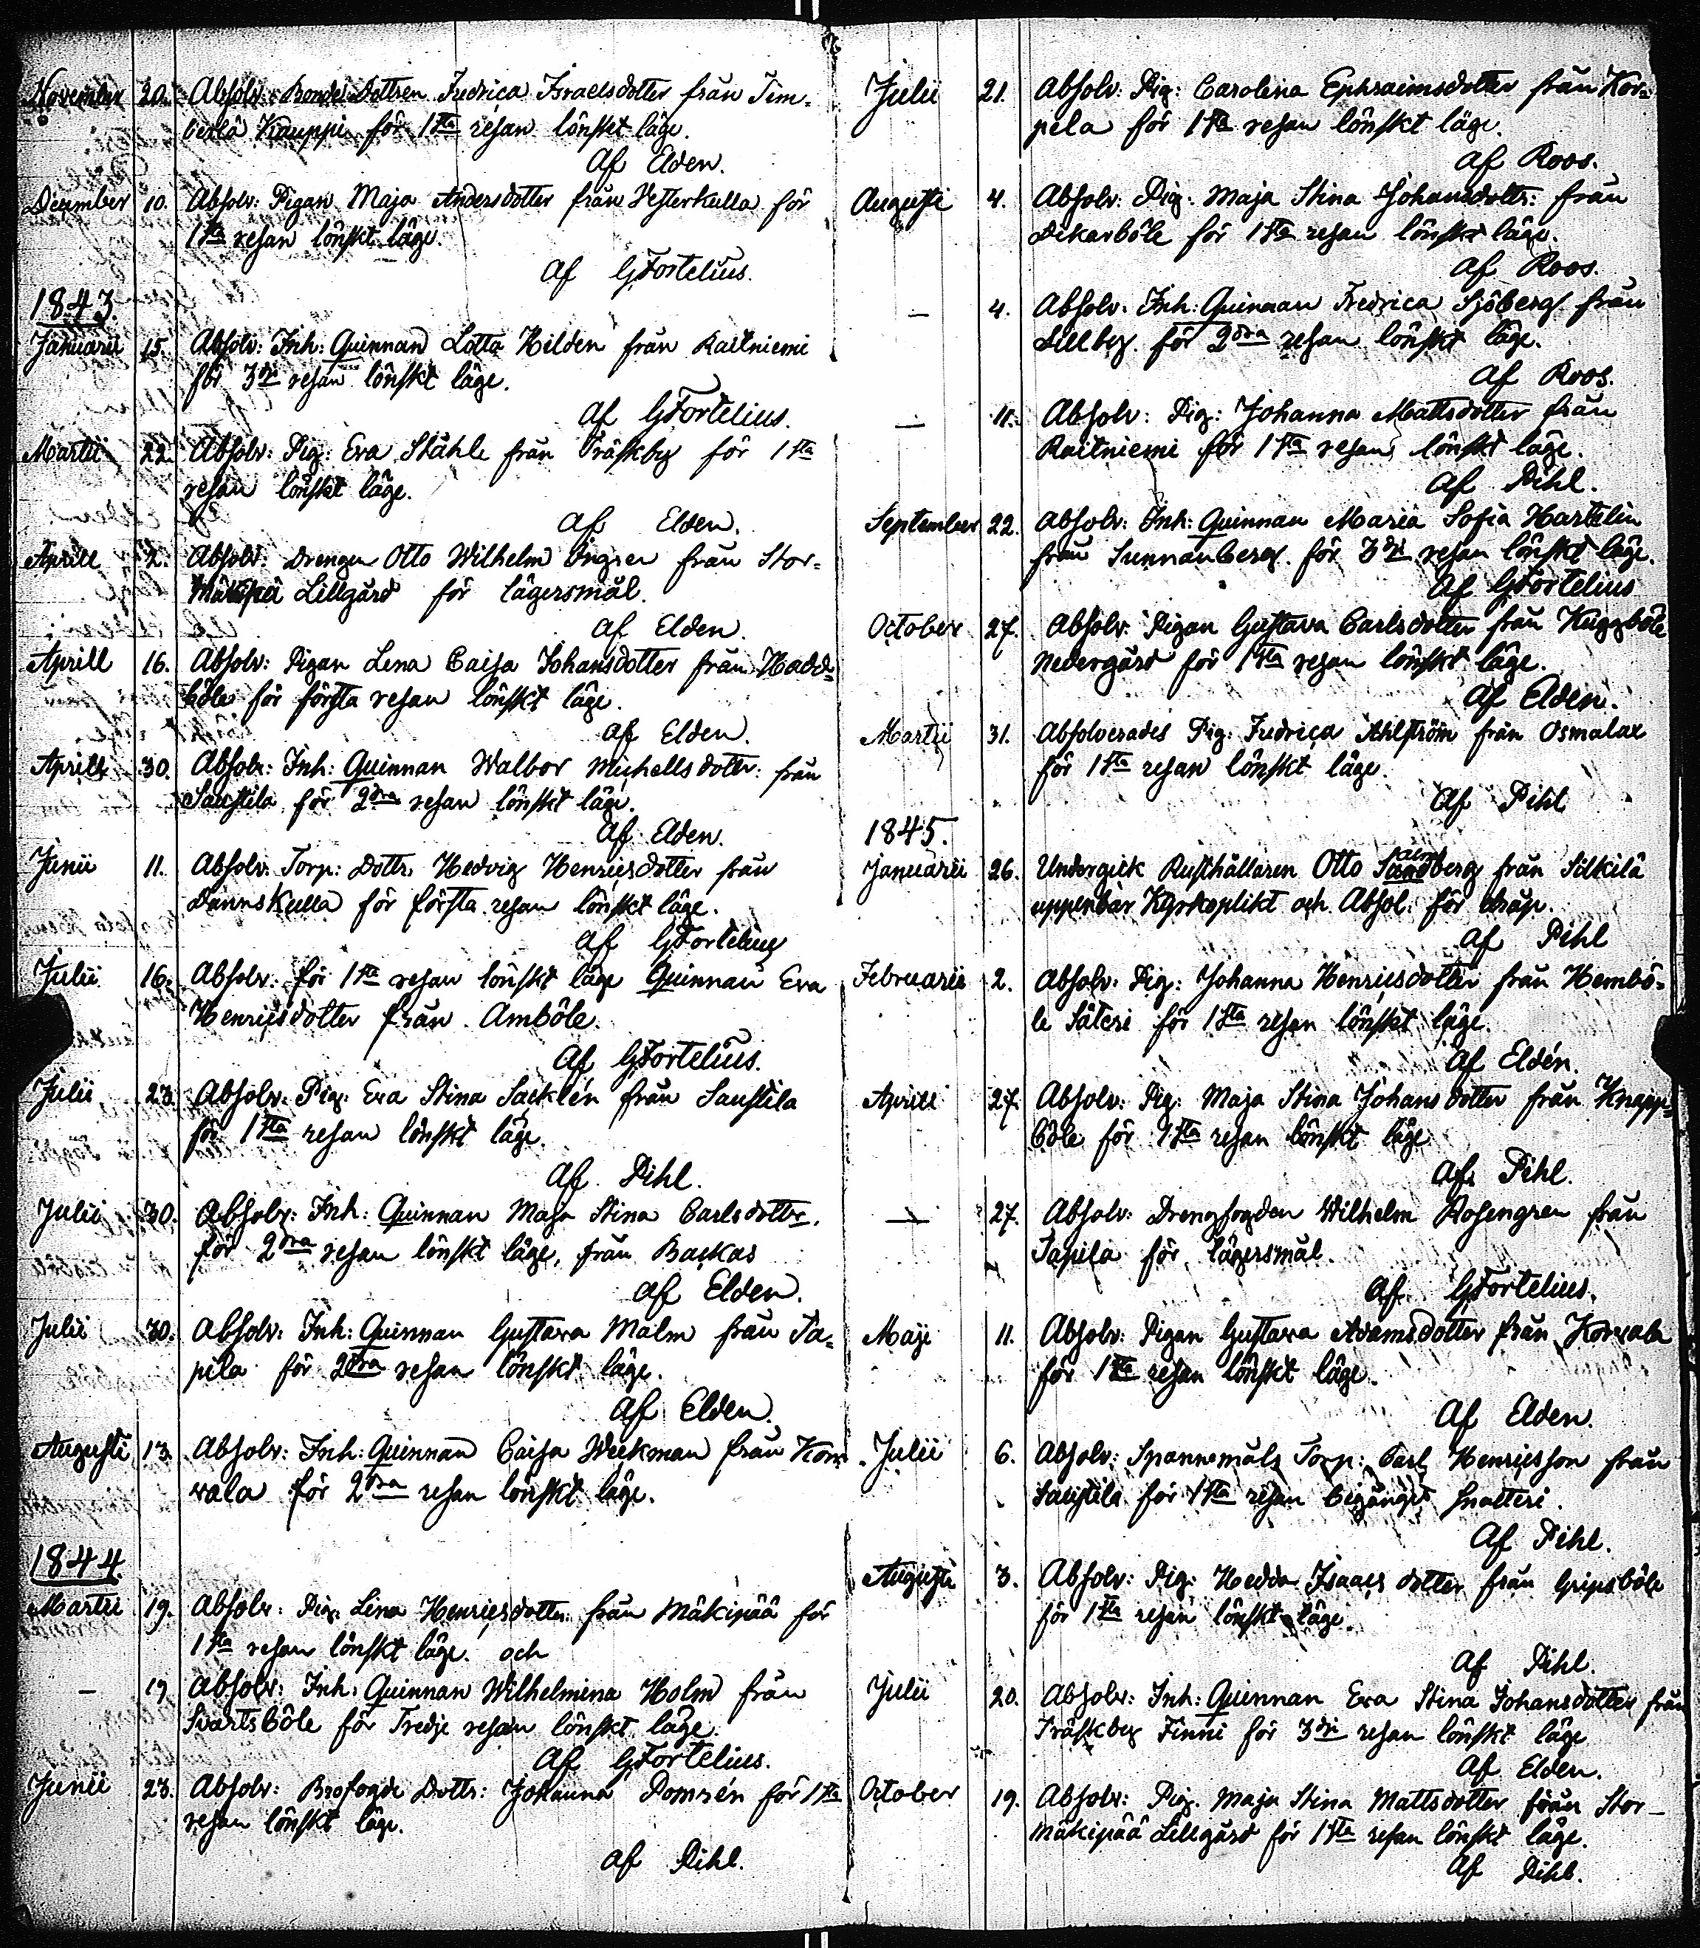 November 20. Absolv: Bonde Dottren Fredrica Israelsdotter från Tim-
berlä Kauppi för 1sta resan lönskt läge.
Af Elden.
December 10. Absolv: Pigan Maja Andersdotter från Westerkulla för
1sta resan lönskt läge.
Af GFortelius.
1843.
Januarii 15. Absolv: Inh: Quinnan Lotta Hilden från Raitniemi
för 3dje resan lönskt läge.
Af GFortelius.
Martii 22. Absolv: Pig: Eva Ståhle från Träskby för 1sta
resan lönskt läge.
Af Elden.
Aprill 2. Absolv: Drengen Otto Wilhelm Öngren från Stor-
Mäkipää Lillgård för lägersmål.
Af Elden.
Aprill 16. Absolv: Pigan Lena Caisa Johansdotter från Hadd-
böle för första resan lönskt läge.
af Elden.
Aprill 30. Absolv: Inh: Quinnan Walbor Michellsdottr: från
Saustila för 2dra resan lönskt läge.
Af Elden.
Junii 11. Absolv: Torp: Dottr. Hedvig Henricsdotter från
Dannskulla för första resan lönskt läge.
af GFortelius
Julii 16. Absolv: för 1sta resan lönskt läge Quinnan Eva
Henricsdotter från Amböle.
Af GFortelius.
Julii 23. Absolv: Pig: Eva Stina Sacklén från Saustila
för 1sta resan lönskt läge.
Af Pihl.
Julii 30. Absolv: Inh: Quinnan Maja Stina Carlsdotter.
för 2dra resan lönskt läge, från Backas
af Elden.
Julii 30. Absolv: Inh: Quinnan Gustava Malm från Ta-
pila för 2dra resan lönskt läge.
Af Elden.
Augusti 13. Absolv: Inh: Quinnan Caisa Weckman från Kor-
vala för 2dra resan lönskt läge.
1844.
Martii 19. Absolv: Pig: Lina Henricsdotter från Mäkipää för
1sta resan lönskt läge. och
— 19 Absolv: Inh: Quinnan Wilhelmina Holm från
Svartsböle för Tredje resan lönskt läge.
Af GFortelius.
Junii 23. Absolv: Brofogde Dottr: Johanna Domrén för 1sta
resan lönskt läge.
af Pihl.
Julii 21. Absolv: Pig: Carolina Ephraimsdotter från Kor-
pela för 1sta resan lönskt läge.
Af Roos.
Augusti 4. Absolv: Pig: Maja Stina Johansdottr: från
Dikarböle för 1sta resan lönskt läge.
Af Roos.
— 4. Absolv: Inh: Quinnan Fredrica Sjöberg från
Lillby för 2dra resan lönskt läge.
Af Roos.
— 11. Absolv: Pig: Johanna Mattsdotter från
Raitniemi för 1sta resan lönskt läge.
Af Pihl.
September 22. Absolv: Inh: Quinnan Maria Sofia Hartelin
från Sunnanberg för 3dje resan lönskt läge.
Af GFortelius
October 27. Absolv: Pigan Gustava Carlsdotter från Kuggböle
Nedergård för 1sta resan lönskt läge.
Af Elden.
Martii 31. Absolverades Pig: Fredrica Ahlström från Osmalax
för 1sta resan lönskt läge.
Af Pihl
1845.
Januarii 26. Undergick Rusthållaren Otto Sandberg från Silkilä
uppenbar Kyrkoplikt och Absol: för dråp.
af Pihl
Februarii 2. Absolv: Pig: Johanna Henricsdotter från Hembö-
le Säteri för 1sta resan lönskt läge.
Af Eldén.
Aprill 27. Absolv: Pig: Maja Stina Johansdotter från Knapp-
böle för 1sta resan lönskt läge
Af Pihl.
— 27. Absolv: Drengfogden Wilhelm Rosengren från
Tapila för lägersmål.
Af GFortelius.
Maji 11. Absolv: Pigan Gustava Adamsdotter från Korvala
för 1sta resan lönskt läge.
Af Elden.
Julii 6. Absolv: Spannemåls Torp: Carl Henricsson från
Saustila för 1sta resan begånget snatteri.
Af Pihl.
Augusti 3. Absolv: Pig: Hedda Isaacs dotter från Gripsböle
för 1sta resan lönskt läge.
Af Pihl.
Julii 20. Absolv: Inh: Quinnan Eva Stina Johansdotter från
Träskby Finni för 3dje resan lönskt läge
Af Elden.
October 19. Absolv: Pig: Maja Stina Mattsdotter från Stor-
Mäkipää Lillgård för 1sta resan lönskt läge.
Af Pihl.